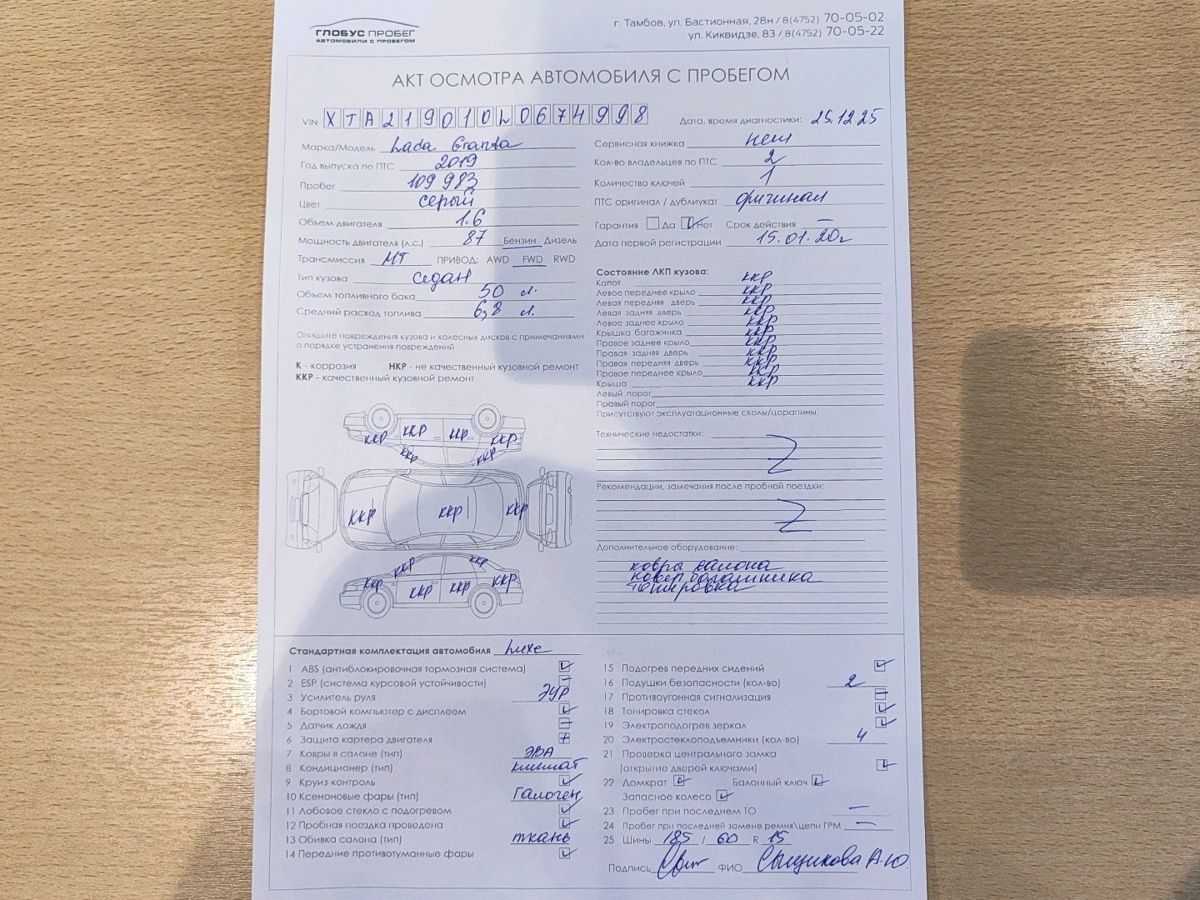 ГЛОБУС ПРОБЕГ
АВТОМОБИЛИ С ПРОБЕГОМ
г. Тамбов, ул. Бастионная, 28н / 8(4752) 70-05-02
ул. Киквидзе, 83 / 8(4752) 70-05-22
АКТ ОСМОТРА АВТОМОБИЛЯ С ПРОБЕГОМ
VIN XTA219010L0674998
Дата, время диагностики: 25.12.25
Марка/Модель Lada Granta
Год выпуска по ПТС 2019
Пробег 109 983
Цвет серый
Объем двигателя 1.6
Мощность двигателя (л.с.) 87 Бензин Дизель
Трансмиссия МТ ПРИВОД: AWD FWD RWD
Тип кузова Седан
Объем топливного бака 50 л.
Средний расход топлива 6,8 л.
Сервисная книжка нет
Кол-во владельцев по ПТС 2
Количество ключей 1
ПТС оригинал / дубликат оригинал
Гарантия Да Нет Срок действия –
Дата первой регистрации 15.01.20г
Опишите повреждения кузова и колесных дисков с примечаниями
о порядке устранения повреждений
К - коррозия НКР - не качественный кузовной ремонт
ККР - качественный кузовной ремонт
Состояние ЛКП кузова:
Капот ккр
Левое переднее крыло ккр
Левая передняя дверь ккр
Левая задняя дверь ккр
Левое заднее крыло ккр
Крышка багажника ккр
Правое заднее крыло ккр
Правая задняя дверь ккр
Правая передняя дверь ккр
Правое переднее крыло ккр
Крыша ккр
Левый порог
Правый порог
Присутствуют эксплуатационные сколы/царапины.
ККР ККР ККР ККР
ККР ККР
ККР ККР ККР
ККР ККР
ККР ККР ККР ККР
Технические недостатки: Z
Рекомендации, замечания после пробной поездки: Z
Дополнительное оборудование:
ковры салона
ковер багажника
тонировка
Стандартная комплектация автомобиля Luxe
1 ABS (антиблокировочная тормозная система)
2 ESP (система курсовой устойчивости)
3 Усилитель руля ЭУР
4 Бортовой компьютер с дисплеем
5 Датчик дождя
6 Защита картера двигателя
7 Ковры в салоне (тип) ЭВА
8 Кондиционер (тип) климат
9 Круиз-контроль
10 Ксеноновые фары (тип) Галоген
11 Лобовое стекло с подогревом
12 Пробная поездка проведена
13 Обивка салона (тип) ткань
14 Передние противотуманные фары
15 Подогрев передних сидений
16 Подушки безопасности (кол-во) 2
17 Противоугонная сигнализация
18 Тонировка стекол
19 Электроподогрев зеркал
20 Электростеклоподъемники (кол-во) 4
21 Проверка центрального замка
(открытие дверей ключами)
22 Домкрат Балонный ключ
Запасное колесо
23 Пробег при последнем ТО –
24 Пробег при последней замене ремня\цепи ГРМ –
25 Шины 185 / 60 R 15
Подпись ФИО Сыщикова А.Ю.